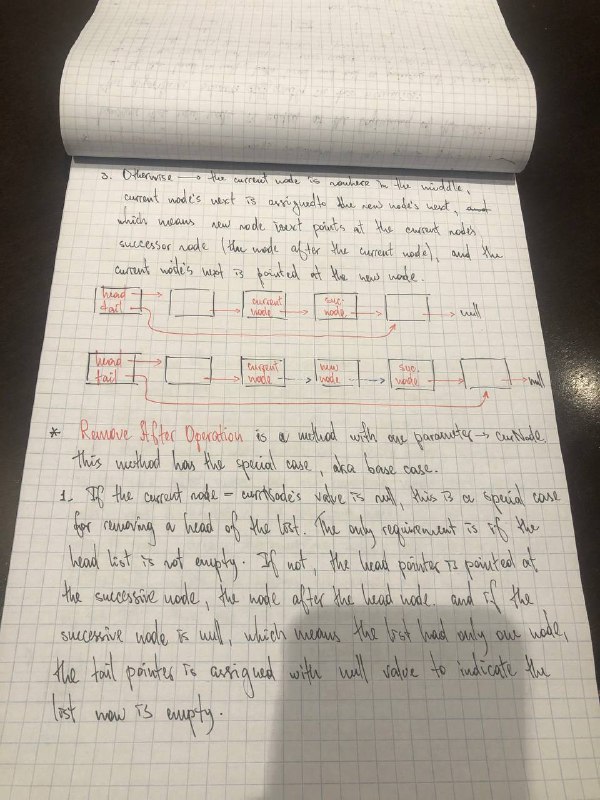 3. Otherwise → the current node is nowhere in the middle,
current node's next is assigned to the new node's next,
which means new node next points at the current node's
successor node (the node after the current node), and the
current node's next is pointed at the new node.
head tail current node suc. node null
head tail current node new node suc. node null
* Remove After Operation is a method with one parameter → curNode
this method has the special case, aka base case.
1. If the current node – currNode's value is null, this is a special case
for removing a head of the list. The only requirement is if the
head list is not empty. If not, the head pointer is pointed at
the successive node, the node after the head node. and if the
successive node is null, which means the list had only one node,
the tail pointer is assigned with null value to indicate the
list now is empty.